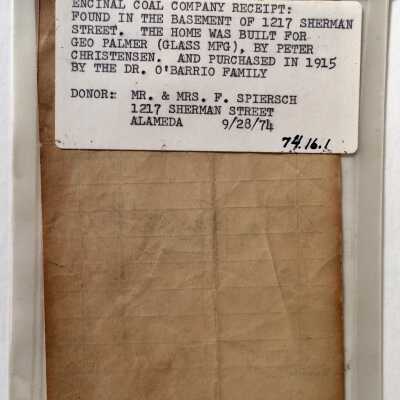 ENCINAL COAL COMPANY RECEIPT:
FOUND IN THE BASEMENT OF 1217 SHERMAN
STREET. THE HOME WAS BUILT FOR
GEO PALMER (GLASS MFG), BY PETER
CHRISTENSEN. AND PURCHASED IN 1915
BY THE DR. O'BARRIO FAMILY
DONOR: MR. & MRS. F. SPIERSCH
1217 SHERMAN STREET
ALAMEDA 9/28/74
74.16.1